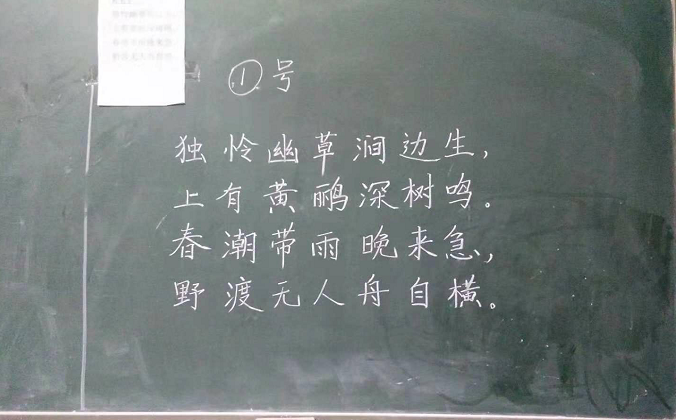 ①号
独怜幽草涧边生，
上有黄鹂深树鸣。
春潮带雨晚来急，
野渡无人舟自横。